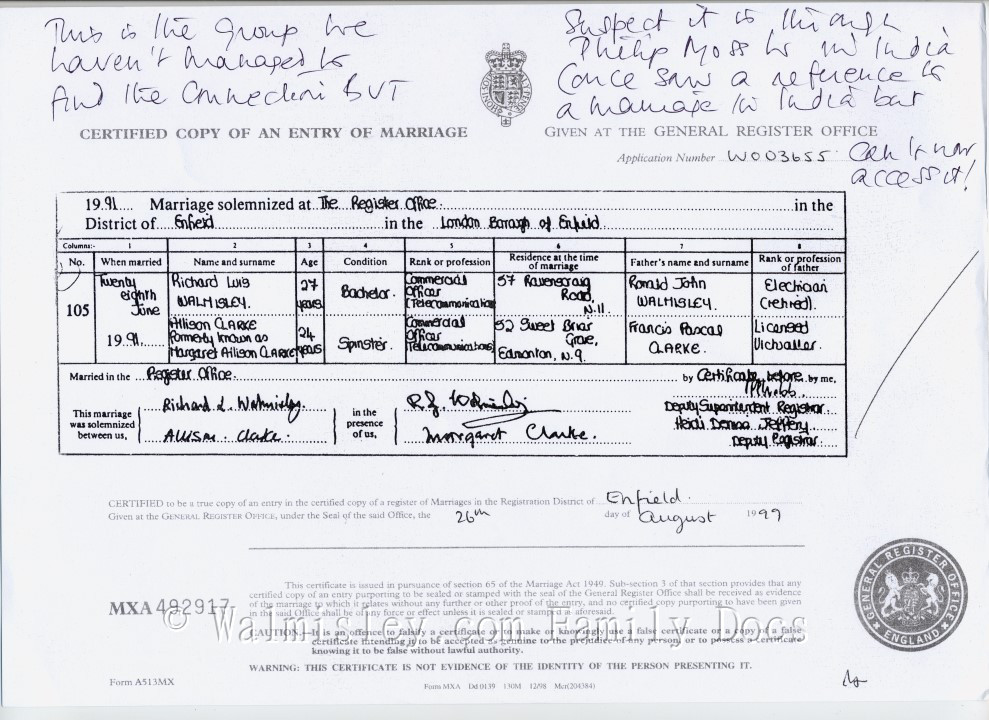 This is the Group we
haven't managed to
find the Connection BUT
Suspect it is through
Philip Moss W in India
(once saw a reference to
a marriage in India but
Can't now
access it!
CERTIFIED COPY OF AN ENTRY OF MARRIAGE
GIVEN AT THE GENERAL REGISTER OFFICE
Application Number W003655
1991 Marriage solemnized at The Register Office in the
District of Enfield in the London Borough of Enfield
Columns:- 1 2 3 4 5 6 7 8
No. When married Name and surname Age Condition Rank or profession Residence at the time of marriage Father's name and surname Rank or profession of father
105
Twenty
eighth
June
1991.
Richard Luis
WALMISLEY.
27
years
Bachelor.
Commercial
Officer
(Telecommunications)
57 Ravenscraig
Road,
N.11.
Ronald John
WALMISLEY.
Electrician
(retired).
Allison CLARKE
formerly known as
Margaret Allison CLARKE
24
years
Spinster.
Commercial
Officer
(Telecommunications)
52 Sweet Briar
Grove,
Edmonton, N.9.
Francis Pascal
CLARKE.
Licensed
Victualler.
Married in the Register Office. by Certificate before by me,
This marriage
was solemnized
between us,
Richard L. Walmisley
Allison Clarke.
in the
presence
of us,
Margaret Clarke.
Deputy Superintendent Registrar
Heidi Donna Jeffery
Deputy Registrar
CERTIFIED to be a true copy of an entry in the certified copy of a register of Marriages in the Registration District of Enfield.
Given at the GENERAL REGISTER OFFICE, under the Seal of the said Office, the 26th day of August 1999
This certificate is issued in pursuance of section 65 of the Marriage Act 1949. Sub-section 3 of that section provides that any
certified copy of an entry purporting to be sealed or stamped with the seal of the General Register Office shall be received as evidence
of the marriage to which it relates without any further or other proof of the entry, and no certified copy purporting to have been given
in the said Office shall be of any force or effect unless it is sealed or stamped as aforesaid.
MXA 492917
© Walmisley.com Family Docs
CAUTION:—It is an offence to falsify a certificate or to make or knowingly use a false certificate or a copy of a false
certificate intending it to be accepted as genuine to the prejudice of any person, or to possess a certificate
knowing it to be false without lawful authority.
WARNING: THIS CERTIFICATE IS NOT EVIDENCE OF THE IDENTITY OF THE PERSON PRESENTING IT.
GENERAL REGISTER OFFICE
ENGLAND
Form A513MX
Form MXA Dd 0139 130M 12/98 Mcr(204384)